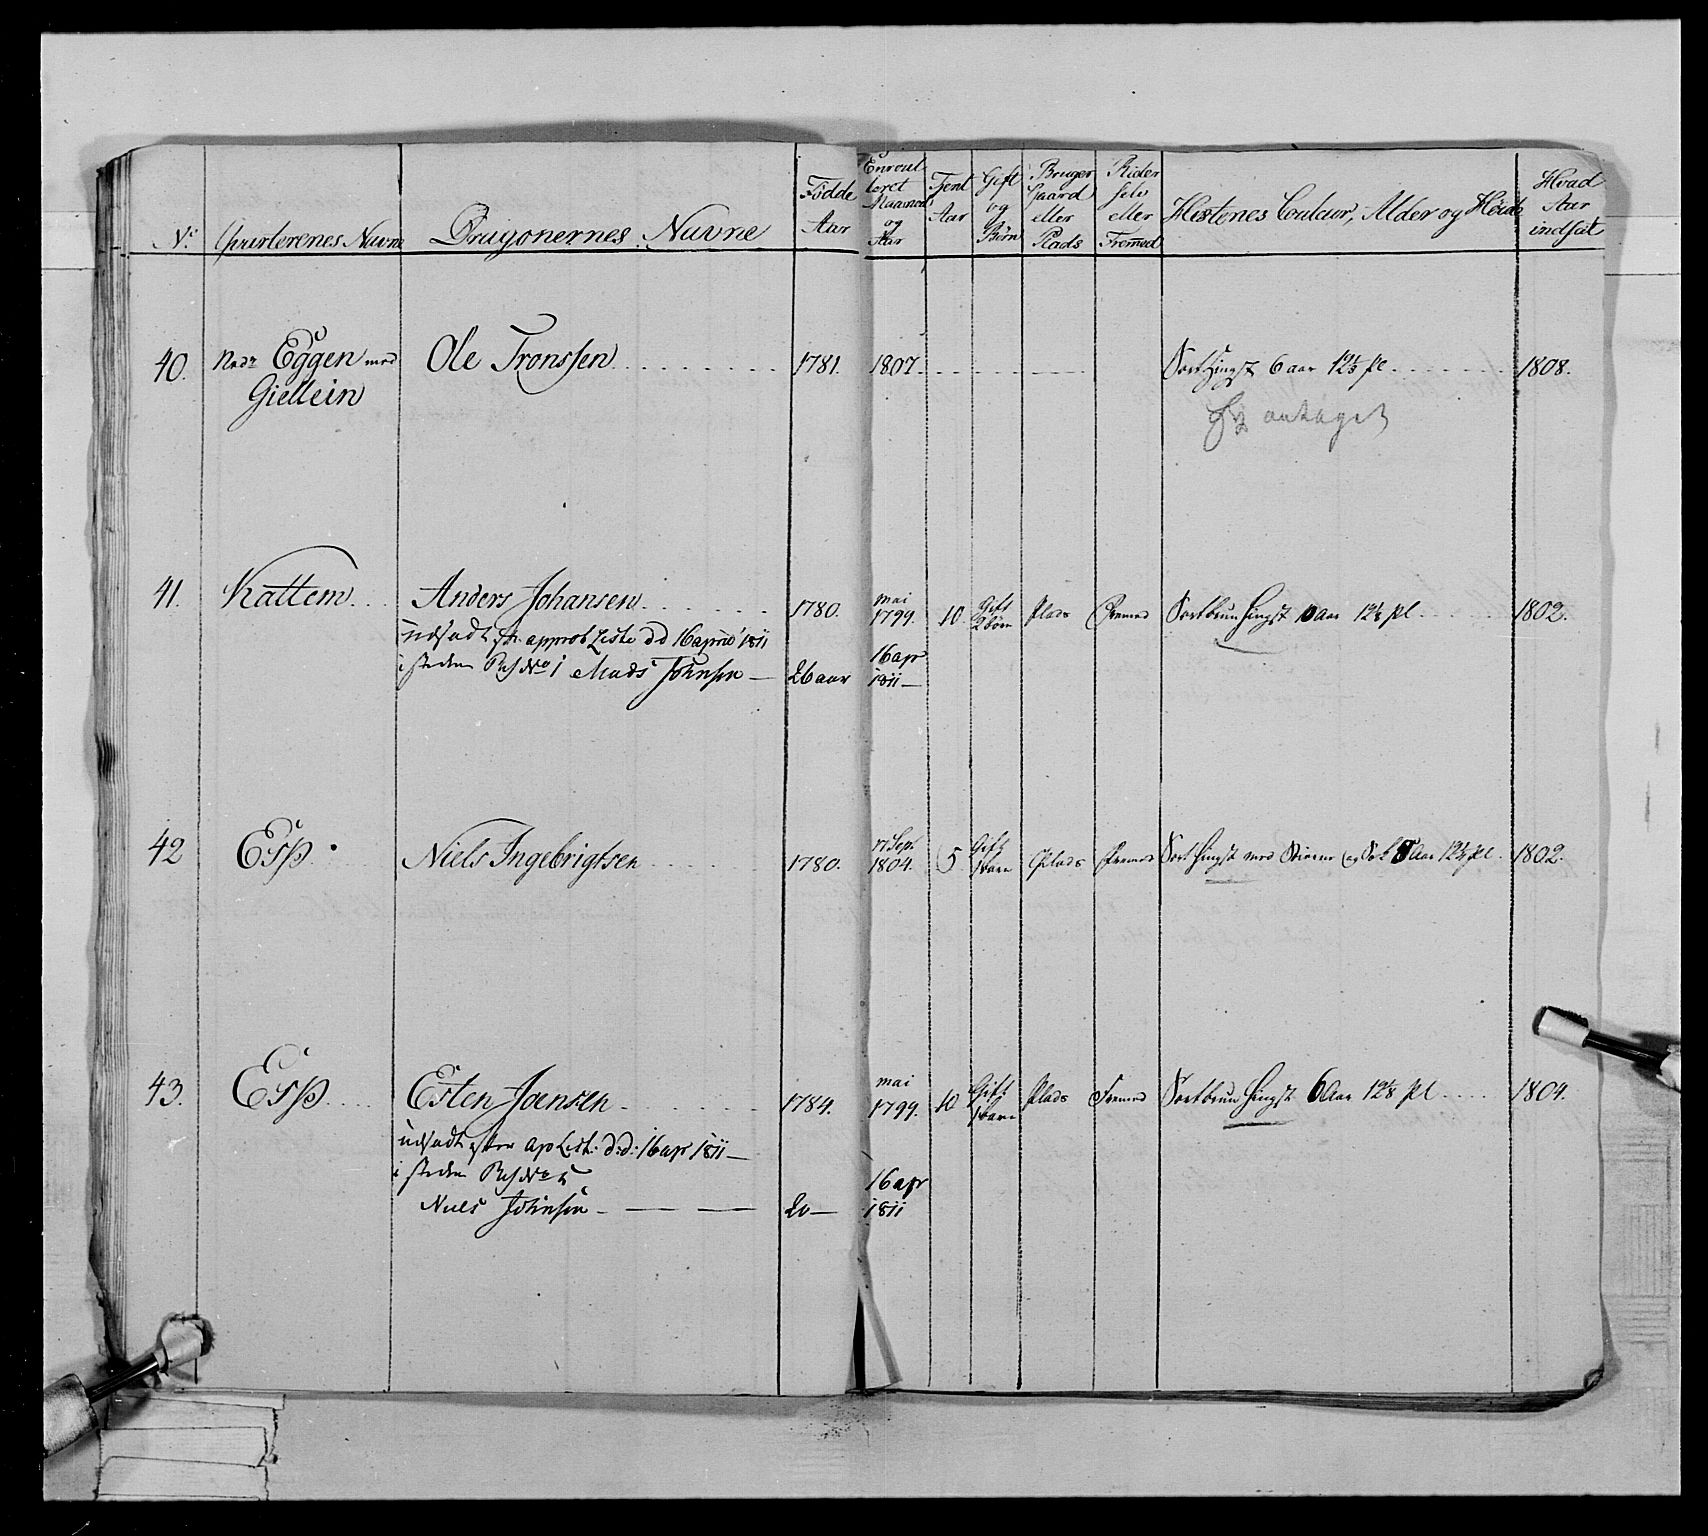 No. Qvarterenes Navne Dragonernes Navne Fødde Aar Enroulleret Maaned og Aar Tjent Aar Gift og Børn Bruger Gaard eller Plads Rider selv eller Fremed Hestenes Couleur, Alder og Høide Hvad Aar indsat
40. Nedr Eggen med Ole Tronssen 1781. 1807. Sort Hingst 6 aar 12⅓ pl 1808.
Giellein
antaget
41. Kattem Anders Johansen 1780. mai 1799. 10. Gift 2 Børn Plads Fremed Sortbrun Hingst 10 Aar 12⅛ pl 1802.
udsadt approb Liste dd 16 april 1811
i steden Res No 1 Mads Johnsen — 26 aar 16 apr 1811 —
42 Esp Niels Ingebrigtsen 1780. 17 Sept. 1804. 5 Gift 1 barn Plads Fremed Sort Hingst med Stierne og 8 Aar 12½ pl 1802.
43. Esp Esten Joensen 1784. mai 1799. 10 Gift 1 barn Plads Fremed Sortbrun Hingst 6 Aar 12⅛ pl 1804.
udsadt efter ap List: d:d: 16 apr 1811 —
i steden Res No 5
Niels Johnsen 20 — 16 apr 1811